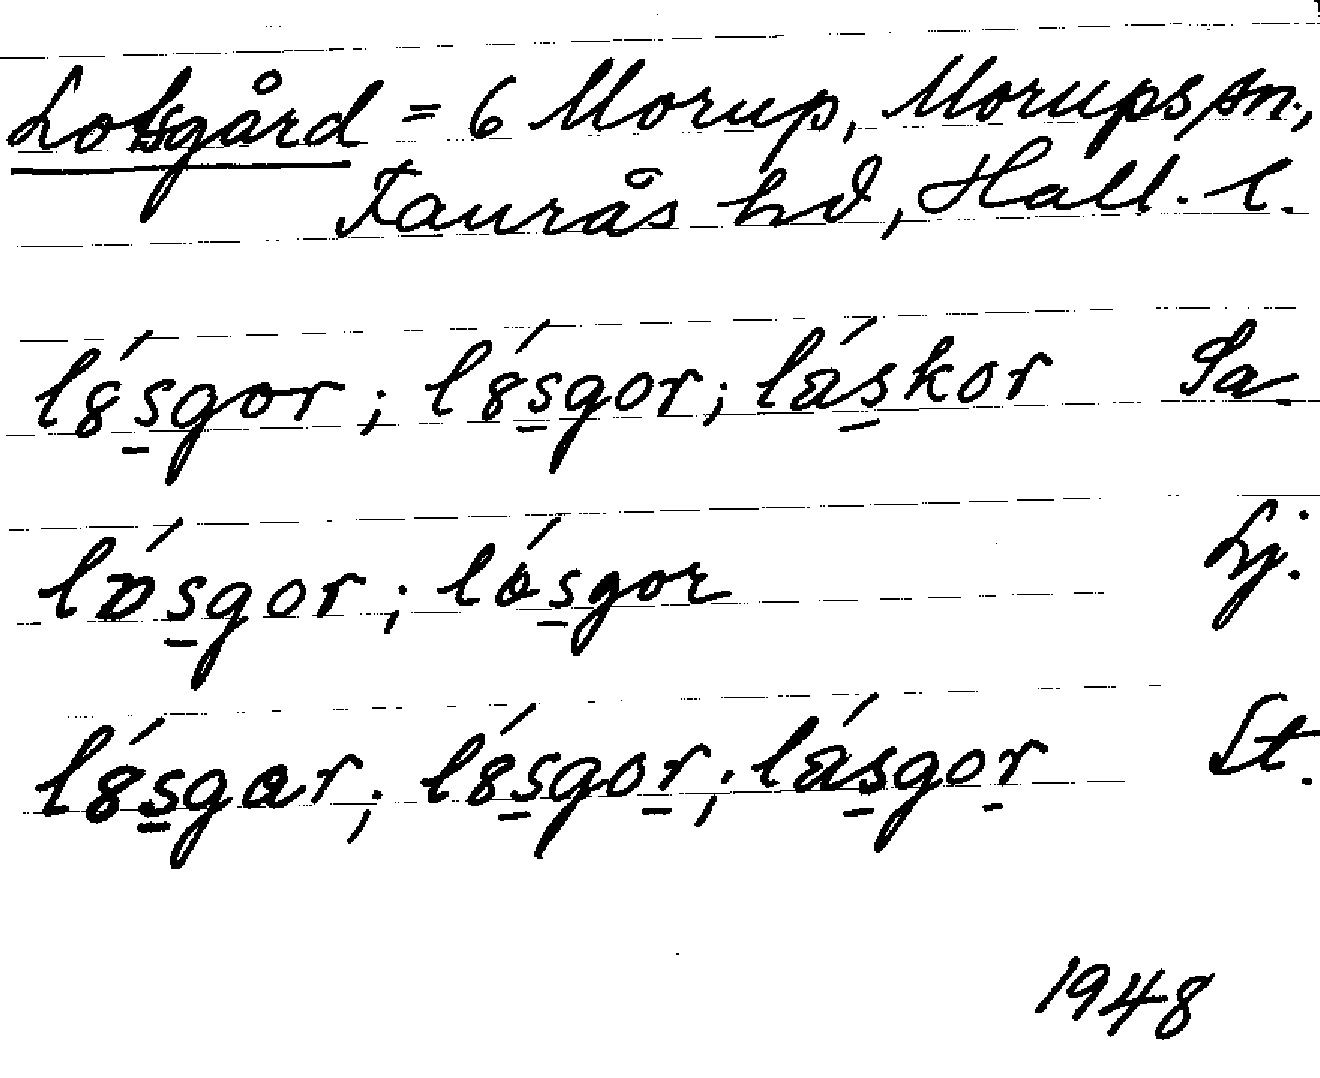 Lotsgård = 6 Morup, Morups sn.,
Faurås hd, Hall. l.
l8́s̲gor; l8́s̲gor; lás̲kor Sa
lɒ́s̲gor; lós̲gor Lj.
l8́s̲gar; l8́s̲gor̲; lás̲gor̲ St.
1948